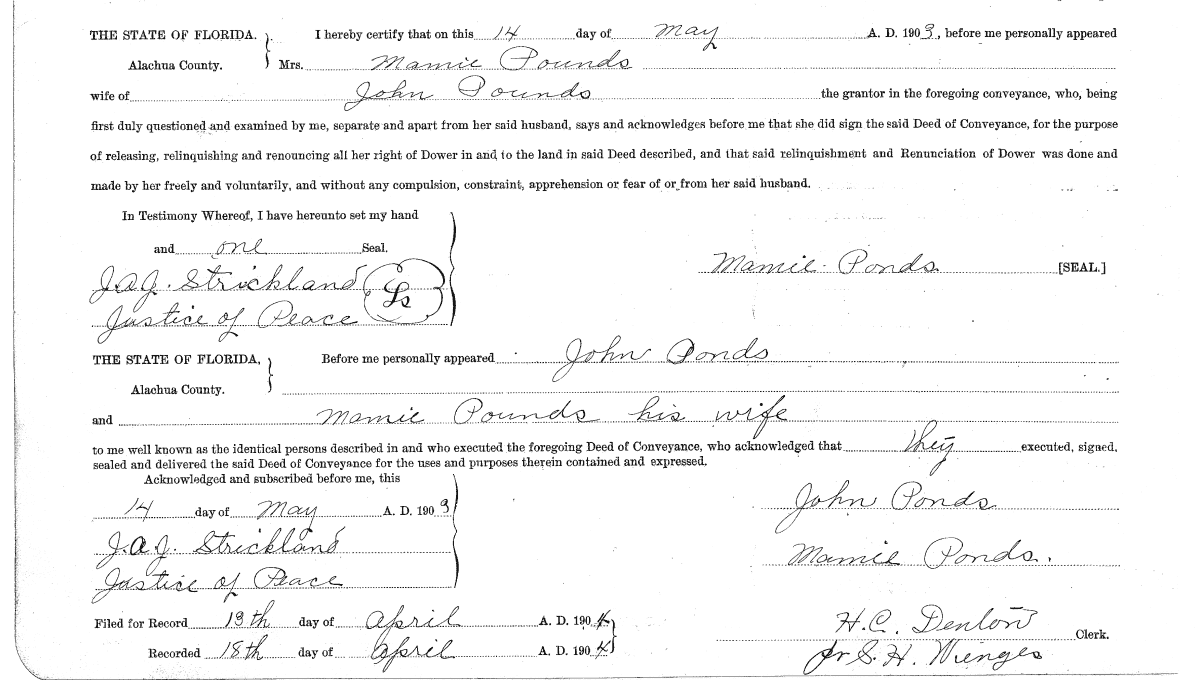 THE STATE OF FLORIDA. } I hereby certify that on this 14 day of May A. D. 1903, before me personally appeared
Alachua County. Mrs. Mamie Pounds
wife of John Pounds the grantor in the foregoing conveyance, who, being
first duly questioned and examined by me, separate and apart from her said husband, says and acknowledges before me that she did sign the said Deed of Conveyance, for the purpose
of releasing, relinquishing and renouncing all her right of Dower in and to the land in said Deed described, and that said relinquishment and Renunciation of Dower was done and
made by her freely and voluntarily, and without any compulsion, constraint, apprehension or fear of or from her said husband.
In Testimony Whereof, I have hereunto set my hand
and one Seal.
Mamie Ponds [SEAL.]
J.A.J. Strickland Ls
Justice of Peace
THE STATE OF FLORIDA, } Before me personally appeared John Ponds
Alachua County.
and Mamie Pounds his wife
to me well known as the identical persons described in and who executed the foregoing Deed of Conveyance, who acknowledged that they executed, signed,
sealed and delivered the said Deed of Conveyance for the uses and purposes therein contained and expressed.
Acknowledged and subscribed before me, this
14 day of May A. D. 1903
John Ponds
J.A.J. Strickland
Mamie Ponds.
Justice of Peace
Filed for Record 13th day of April A. D. 1904
H.C. Denton Clerk.
Recorded 18th day of April A. D. 1904
pr S. H. Wienges